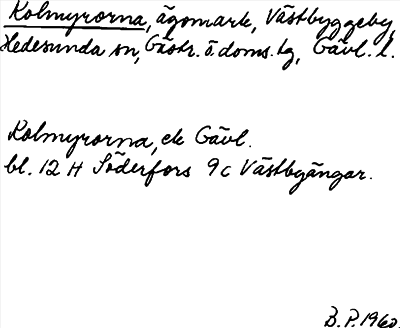 Kolmyrorna, ägomark, Västbyggeby,
Hedesunda sn, Gästr. ö doms. tg, Gävl. l.
Kolmyrorna, ek Gävl.
bl. 12 H Söderfors 9c Västbygångar.
B.P. 1960.